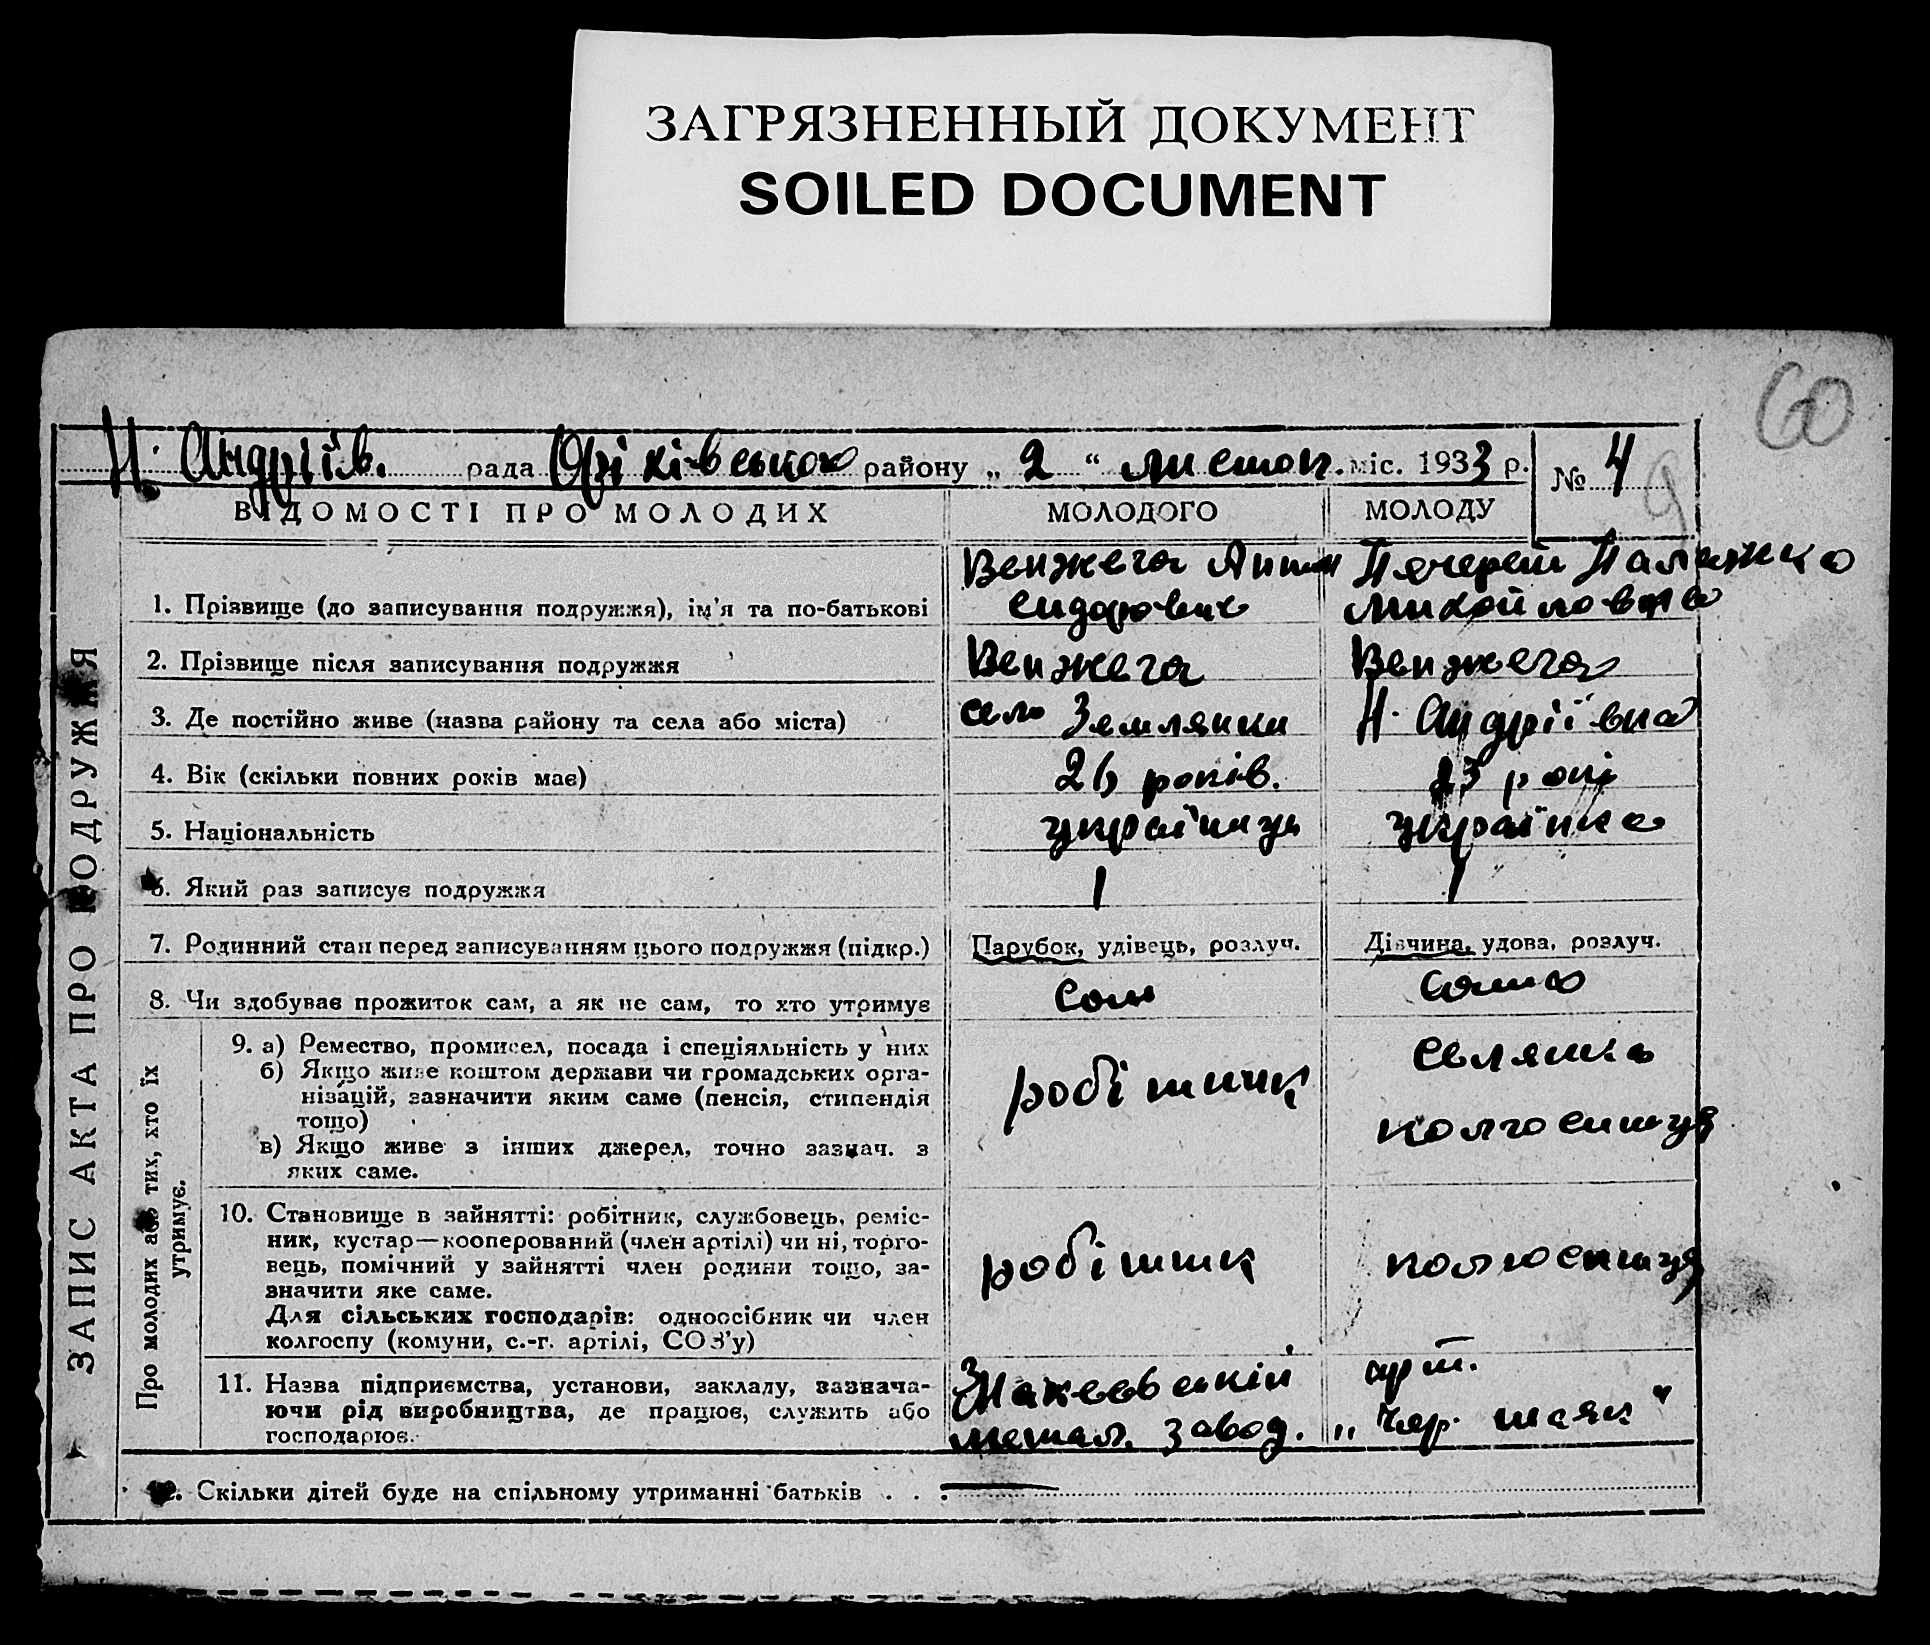 ЗАГРЯЗНЕННЫЙ ДОКУМЕНТ
SOILED DOCUMENT
60
Н. Андріїв. рада Оріхівського району „ 2 “ листоп. міс. 1933 р. № 4
9
ЗАПИС АКТА ПРО ПОДРУЖЖЯ
ВІДОМОСТІ ПРО МОЛОДИХ МОЛОДОГО МОЛОДУ
Венжега Антон Печерей Палажка
1. Прізвище (до записування подружжя), ім'я та по-батькові Сидорович Михайловна
2. Прізвище після записування подружжя Венжега Венжега
3. Де постійно живе (назва району та села або міста) село Землянки Н. Андріївка
4. Вік (скільки повних років має) 26 років. 23 рокі
5. Національність українць українка
6. Який раз записує подружжя 1 1
7. Родинний стан перед записуванням цього подружжя (підкр.) Парубок, удівець, розлуч. Дівчина, удова, розлуч.
8. Чи здобуває прожиток сам, а як не сам, то хто утримує сам сама
Про молодих або тих, хто їх
утримує.
9. а) Ремество, промисел, посада і спеціяльність у них
б) Якщо живе коштом держави чи громадських орга-
нізацій, зазначити яким саме (пенсія, стипендія
тощо)
в) Якщо живе з інших джерел, точно зазнач. з
яких саме.
робітник
селянка
колгоспиця
10. Становище в зайнятті: робітник, службовець, реміс-
ник, кустар—кооперований (член артілі) чи ні, торго-
вець, помічний у зайнятті член родини тощо, за-
значити яке саме.
Для сільських господарів: одноосібник чи член
колгоспу (комуни, с.-г. артілі, СОЗ'у)
робітник
колгоспиця
11. Назва підприємства, установи, закладу, зазнача-
ючи рід виробництва, де працює, служить або
господарює.
Макеєвский
метал. завод.
арт.
„Чер. маяк“
12. Скільки дітей буде на спільному утриманні батьків . . . —